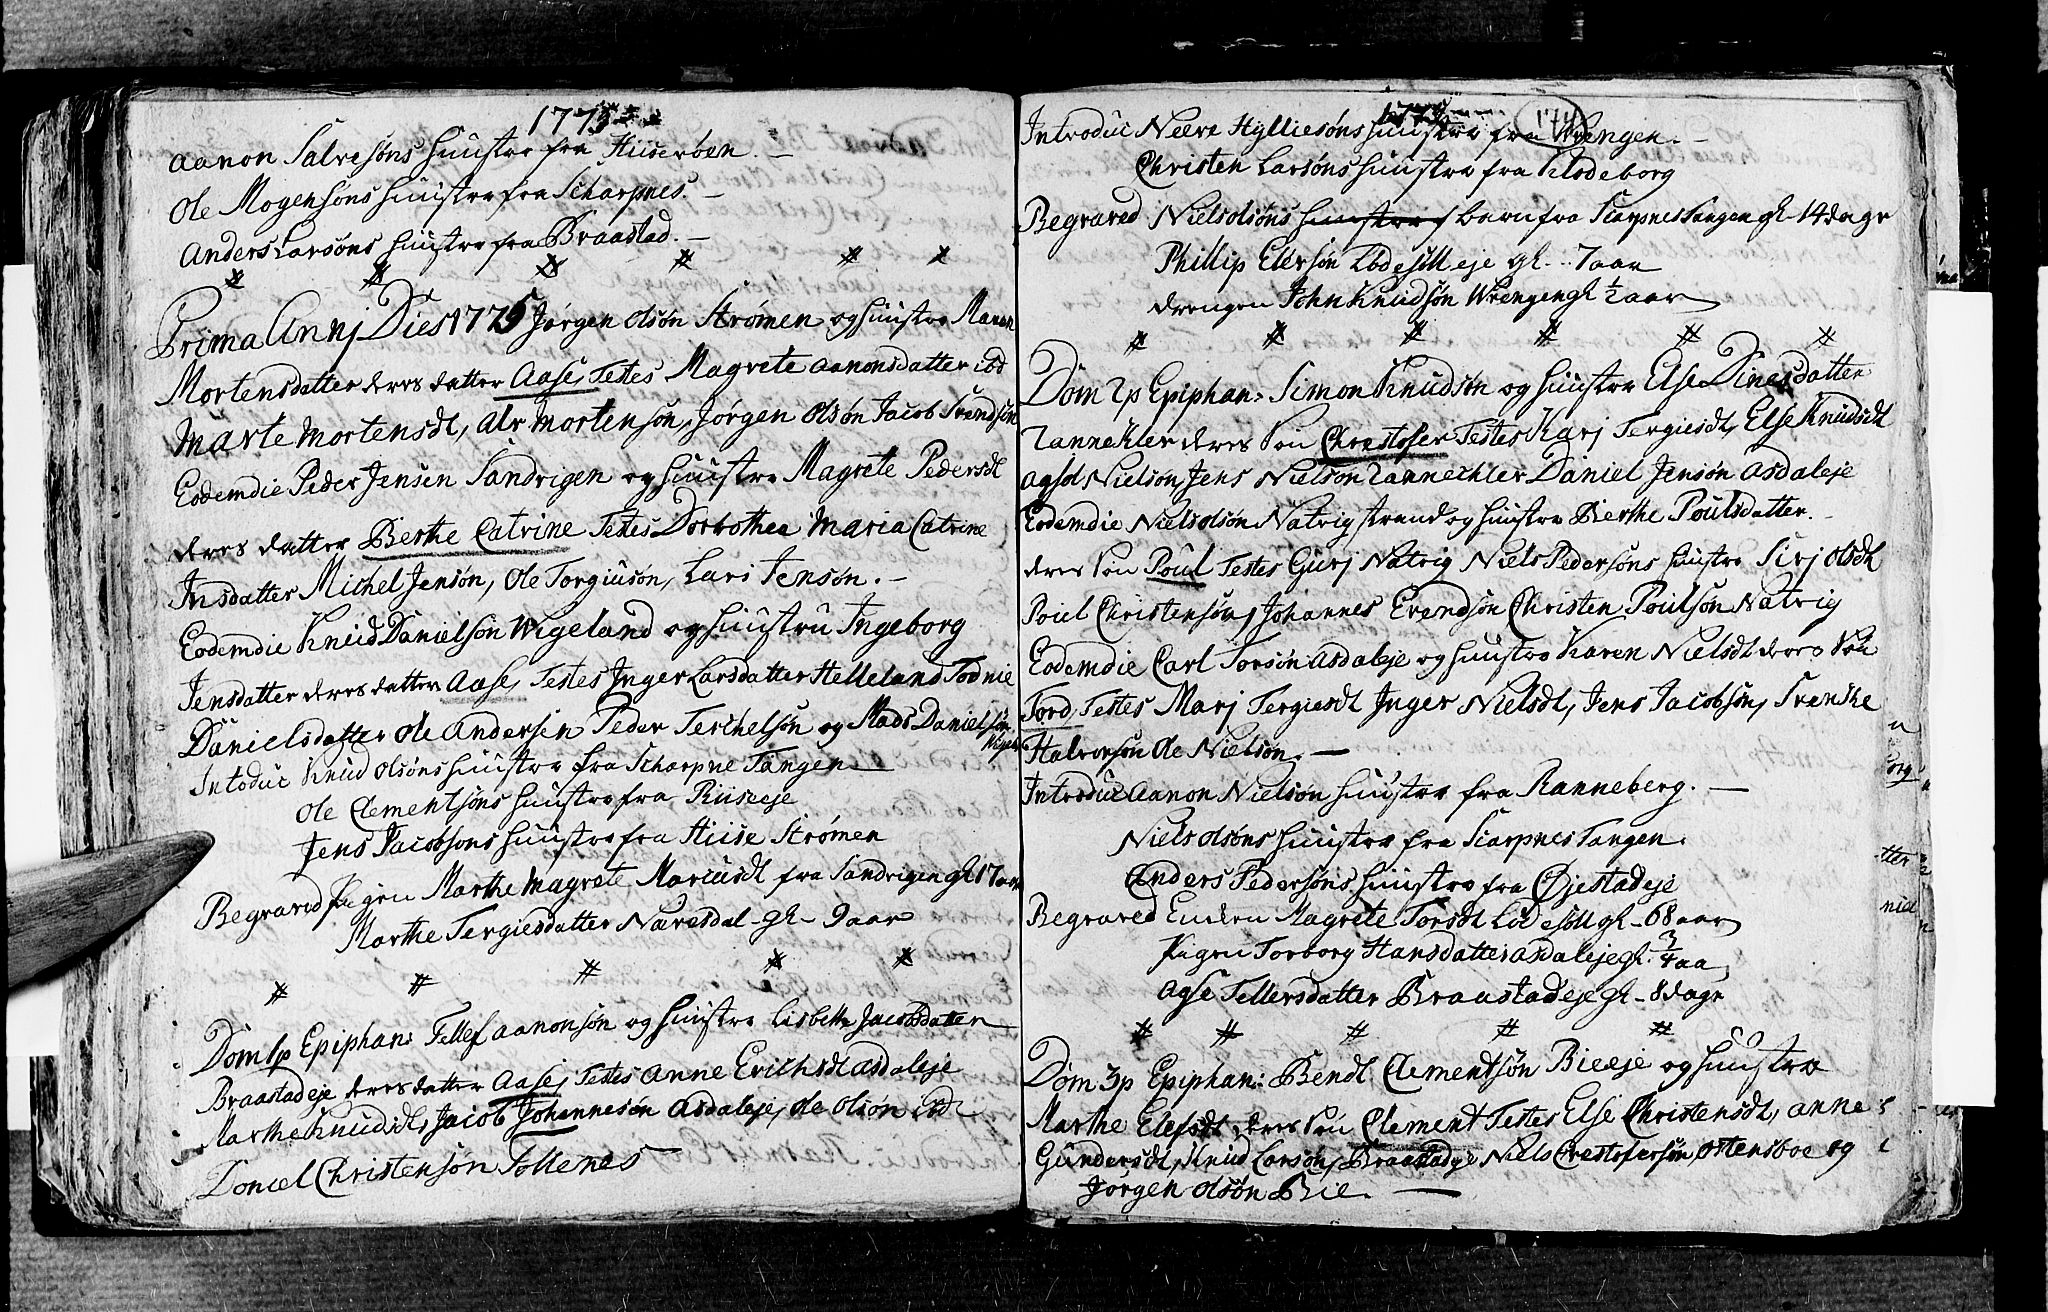 1775
Aanon Salvesøns huustro fra Hiiserøen.
Ole Mogensøns huustro fra Scharpnes.
Anders Larsøns huustro fra Braastad.
Prima Annj Dies 1775 Jørgen Olsøn Strømen og huustro Maren
Mortensdatter deres datter Aase, Testes Magrete Aanonsdatter ibd
Marte Mortensdt, Alv Mortensøn, Jørgen Olsøn Jacob Svendsøn
Eodemdie Peder Jensen Sandvigen og huustro Magrete Pedersdt
deres datter Berthe Catrine Testes Dorothea Maria Catrine
Jnsdatter Michel Jensøn, Ole Torgiusøn, Lars Jensøn.
Eodemdie Knud Danielsøn Wigeland og huustru Ingeborg
Jensdatter deres datter Aase, Testes Inger Larsdatter Helleland Todnie
Danielsdatter Ole Andersen Peder Terchelsøn og Mads Danielsøn
Intoduc Knud Olsøns huustro fra Scharpne Tangen
Ole Clementsøns huustro fra Riiseeje
Jens Jacobsøns huustro fra Hiise Strømen
Begraved Pigen Marthe Magrete Mariusdt fra Sandvigen gl 17 aar
Marthe Tergiesdatter Næresdal gl 9 aar
Dom 1 p Epiphan: Tellef Aanonsøn og huustro Lisbeth Jacobsdatter
Braastadeje deres datter Aase, Testes Anne Erichsdt Asdaleje
Marthe Knudsdt, Jacob Johannesøn Asdaleje, Ole Olsøn ibd
Daniel Christensøn Sollenes
1775 174
Introduc Neere Hylliesøns huustro fra Wrengen.
Christen Larsøns huustro fra Klodeborg
Begraved Niels Olsøns huustroes barn fra Scarpnes Tangen gl 14 dage
Phillip Elersøn Lødesøll eje gl 7 aar
drengen John Knudsøn Wrengen gl 1/2 aar
Dom 2 p Epiphan: Simon Knudsøn og huustro Else Dinesdatter
Tannekler deres Søn Chrestofer Testes Karj Tergiesdt, Else Knudsdt
Agsel Nielsøn, Jens Nielsøn Tannechler Daniel Jensøn Asdaleje
Eodemdie Niels Olsøn Natvig strand og huustro Berthe Poulsdatter.
deres Søn Poul Testes Gurj Natvig Niels Pedersøns huustro Sirj Olsdt
Poul Christensøn, Johannes Evendsøn Christen Poulsøn Natvig
Eodemdie Carl Torsøn Asdaleje og huustro Karen Nielsdt deres Søn
Tord, Testes Marj Tergiesdt Inger Nielsdt, Jens Jacobsøn, Svenke
Halvorsøn Ole Nielsøn.
Introduc Aanon Nielsøn huustro fra Ranneberg.
Niels Olsøns huustro fra Scarpnes Tangen.
Anders Pedersøns huustro fra Øjestadeje
Begraved Enchen Magrete Torsdt Lødesøll gl 68 aar
Pigen Torborg Hansdatter Asdaleje gl 3/4 aa
Agse Tellersdatter Braastadeje gl 8 dage
Dom 3 p Epiphan: Bendt Clementsøn Bieeje og huustro
Marthe Elefsdt deres Søn Clement Testes Else Christensdt, Anne
Gundersdt, Knud Larsøn, Braastadeje Niels Crestofersøn, Ostensboe og
Jørgen Olsøn Bie.